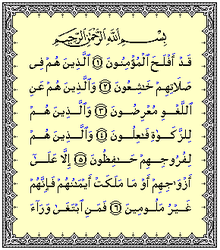 بِسْمِ ٱللَّهِ ٱلرَّحْمَٰنِ ٱلرَّحِيمِ
قَدْ أَفْلَحَ ٱلْمُؤْمِنُونَ ١ ٱلَّذِينَ هُمْ فِى
صَلَاتِهِمْ خَٰشِعُونَ ٢ وَٱلَّذِينَ هُمْ عَنِ
ٱللَّغْوِ مُعْرِضُونَ ٣ وَٱلَّذِينَ هُمْ
لِلزَّكَوٰةِ فَٰعِلُونَ ٤ وَٱلَّذِينَ هُمْ
لِفُرُوجِهِمْ حَٰفِظُونَ ٥ إِلَّا عَلَىٰٓ
أَزْوَٰجِهِمْ أَوْ مَا مَلَكَتْ أَيْمَٰنُهُمْ فَإِنَّهُمْ
غَيْرُ مَلُومِينَ ٦ فَمَنِ ٱبْتَغَىٰ وَرَآءَ